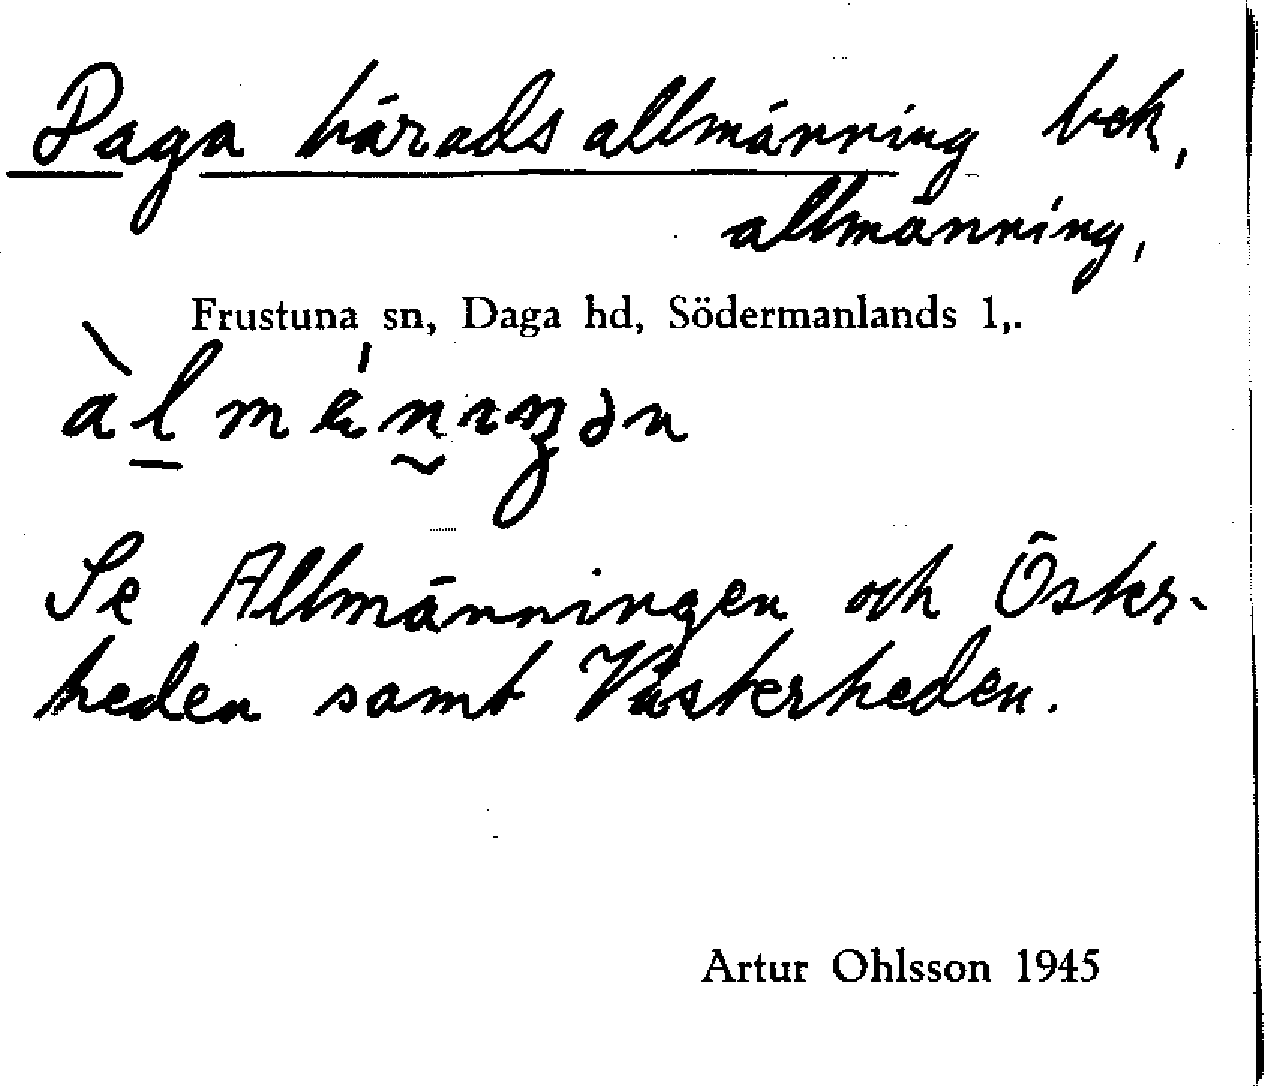 Daga härads allmänning bek,
allmänning,
Frustuna sn, Daga hd, Södermanlands l,.
Se Allmänningen och Öster-
heden samt Västerheden.
Artur Ohlsson 1945